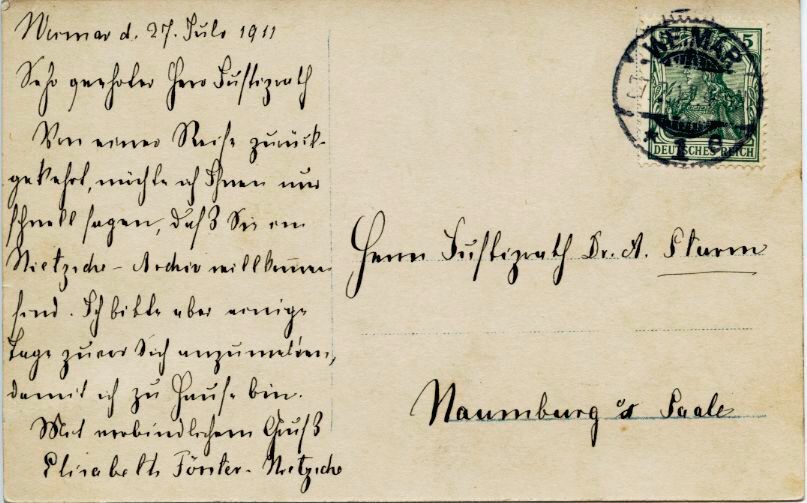 Weimar d. 27. Juli 1911
Sehr geehrter Herr Justizrath
Von einer Reise zurück-
gekehrt, möchte ich Ihnen nur
schnell sagen, daß Sie im
Nietzsche-Archiv willkommen
sind. Ich bitte aber einige
Tage zuvor Sich anzumelden,
damit ich zu Hause bin.
Mit verbindlichem Gruß
Elisabeth Förster-Nietzsche
WEIMAR
5
DEUTSCHES REICH
* 1 e
Herrn Justizrath Dr. A. Sturm
Naumburg a/ Saale